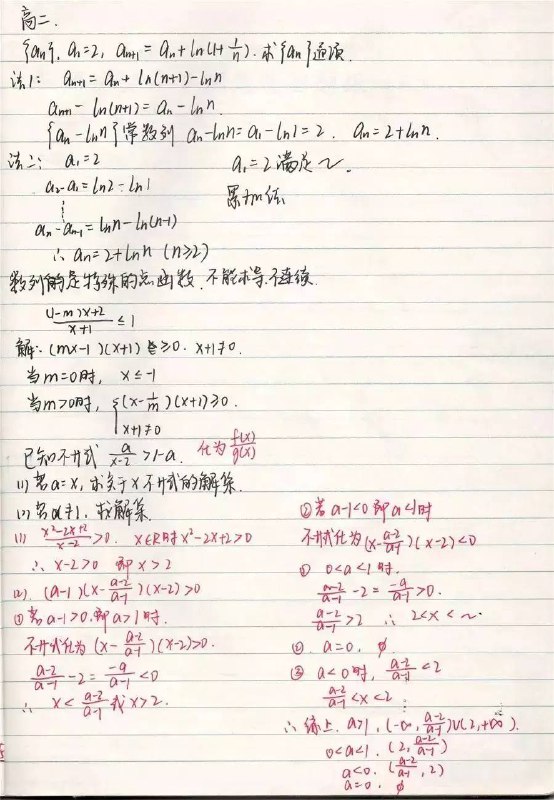 高二.
{an}, a1=2, an+1 = an + ln(1+1/n). 求{an}通项.
法1: an+1 = an + ln(n+1)-lnn
an+1 - ln(n+1) = an - lnn.
{an-lnn}常数列 an-lnn = a1-ln1 = 2. an=2+lnn.
法二: a1=2 a1=2满足~.
a2-a1=ln2-ln1 累加法
⋮
an-an-1=lnn-ln(n-1)
∴ an=2+lnn (n≥2)
数列的是特殊的点函数.不能求导.不连续.
((1-m)x+2)/(x+1) ≤ 1
解: (mx-1)(x+1)≥0. x+1≠0.
当m=0时, x≤-1
当m>0时, {(x-1/m)(x+1)≥0.
x+1≠0
已知不廾式 a/(x-2)>1-a. 化为 f(x)/g(x)
(1)若a=x,求关于x不廾式的解集.
(2)若a≠1,求解集.
(1) (x²-2x+2)/(x-2)>0. x∈R时x²-2x+2>0
∴ x-2>0 即x>2
(2). (a-1)(x-(a-2)/(a-1))(x-2)>0
①若a-1>0.即a>1时.
不廾式化为(x-(a-2)/(a-1))(x-2)>0.
(a-2)/(a-1)-2=(-a)/(a-1)<0
∴ x<(a-2)/(a-1)或x>2.
②若a-1<0即a<1时
不廾式化为(x-(a-2)/(a-1))(x-2)<0
① 0<a<1时.
(a-2)/(a-1)-2=(-a)/(a-1)>0.
(a-2)/(a-1)>2 ∴ 2<x<~
②. a=0, ∅
③ a<0时, (a-2)/(a-1)<2
(a-2)/(a-1)<x<2
∴综上, a>1, (-∞,(a-2)/(a-1))∪(2,+∞).
0<a<1. (2,(a-2)/(a-1))
a<0. ((a-2)/(a-1),2)
a=0, ∅